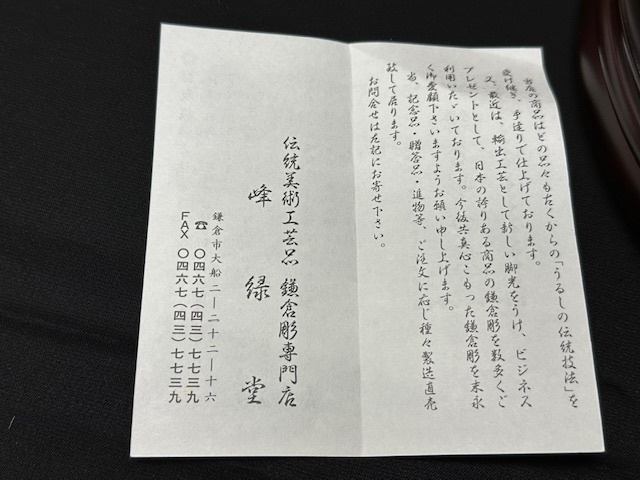 当店の商品はどの品々も古くからの「うるしの伝統技法」を
受け継ぎ、手造りで仕上げております。
又、最近は、輸出工芸として新しい脚光をうけ、ビジネス
プレゼントとして、日本の誇りある商品の鎌倉彫を数多くご
利用いたゞいております。今後共真心こもった鎌倉彫を末永
く御愛顧下さいますようお願い申し上げます。
尚、記念品・贈答品・進物等、ご注文に応じ種々製造直売
致して居ります。
お問合せは左記にお寄せ下さい。
伝統美術工芸品 鎌倉彫専門店
峰緑堂
鎌倉市大船二ー二十二ー十六
☎ 〇四六七(四三)七七三九
FAX 〇四六七(四三)七七三九